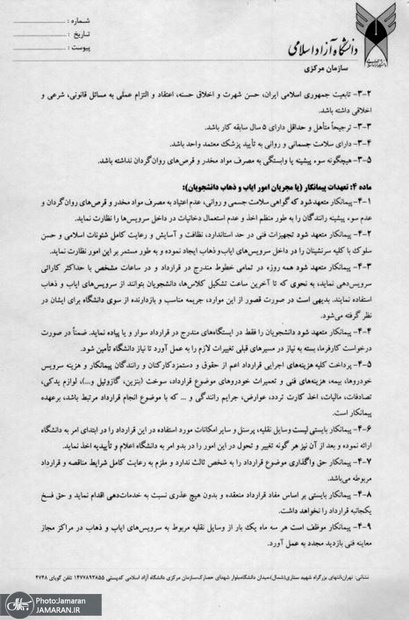 شماره :
تاریخ :
پیوست :
دانشگاه آزاد اسلامی
سازمان مرکزی
۳-۲- تابعیت جمهوری اسلامی ایران، حسن شهرت و اخلاق حسنه، اعتقاد و التزام عملی به مسائل قانونی، شرعی و
اخلاقی داشته باشد.
۳-۳- ترجیحاً متأهل و حداقل دارای ۵ سال سابقه کار باشد.
۳-۴- دارای سلامت جسمانی و روانی به تأیید پزشک معتمد واحد باشد.
۳-۵- هیچگونه سوء پیشینه یا وابستگی به مصرف مواد مخدر و قرص‌های روان‌گردان نداشته باشد.
ماده ۴: تعهدات پیمانکار (یا مجریان امور ایاب و ذهاب دانشجویان):
۴-۱- پیمانکار متعهد شود که گواهی سلامت جسمی و روانی، عدم اعتیاد به مصرف مواد مخدر و قرص‌های روان‌گردان و
عدم سوء پیشینه رانندگان را به طور منظم اخذ و عدم استعمال دخانیات در داخل سرویس‌ها را نظارت نماید.
۴-۲- پیمانکار متعهد شود تجهیزات فنی در حد استاندارد، نظافت و آسایش و رعایت کامل شئونات اسلامی و حسن
سلوک با کلیه سرنشینان را در داخل سرویس‌های ایاب‌و ذهاب ایجاد نموده و به طور مستمر بر این امور نظارت نماید.
۴-۳- پیمانکار متعهد شود همه روزه در تمامی خطوط مندرج در قرارداد و در ساعات مشخص با حداکثر کارائی
سرویس‌دهی نماید، به نحوی که تا آخرین ساعت تشکیل کلاس‌ها، دانشجویان بتوانند از سرویس‌های ایاب و ذهاب
استفاده نمایند. بدیهی است در صورت قصور از این موارد، جریمه مناسب و بازدارنده از سوی دانشگاه برای ایشان در
نظر گرفته می‌شود.
۴-۴- پیمانکار متعهد شود دانشجویان را فقط در ایستگاه‌های مندرج در قرارداد سوار و یا پیاده نماید. ضمناً در صورت
درخواست کارفرما، بسته به نیاز در مسیرهای قبلی تغییرات لازم را به عمل آورد تا نیاز دانشگاه تأمین شود.
۴-۵- پرداخت کلیه هزینه‌های اجرایی قرارداد اعم از حقوق و دستمزد کارکنان و رانندگان پیمانکار و هزینه سرویس
خودروها، بیمه، هزینه‌های فنی و تعمیرات خودروهای موضوع قرارداد، سوخت (بنزین، گازوئیل و...)، لوازم یدکی،
تصادفات، مالیات، اخذ کارت تردد، عوارض، جرایم رانندگی و ... که با موضوع انجام قرارداد مرتبط باشد، برعهده
پیمانکار است.
۴-۶- پیمانکار بایستی لیست وسایل نقلیه، پرسنل و سایر امکانات مورد استفاده در این قرارداد را در ابتدای امر به دانشگاه
ارائه نموده و بعد از آن نیز هر گونه تغییر و تحول در این امور را در بدو امر به دانشگاه اعلام و تأییدیه اخذ نماید.
۴-۷- پیمانکار حق واگذاری موضوع قرارداد را به شخص ثالث ندارد و ملزم به رعایت کامل شرایط مناقصه و قرارداد
مربوطه می‌باشد.
۴-۸- پیمانکار بایستی بر اساس مفاد قرارداد منعقده و بدون هیچ عذری نسبت به خدمات‌دهی اقدام نماید و حق فسخ
یکجانبه قرارداد را نخواهد داشت.
۴-۹- پیمانکار موظف است هر سه ماه یک بار از وسایل نقلیه مربوط به سرویس‌های ایاب و ذهاب در مراکز مجاز
معاینه فنی بازدید مجدد به عمل آورد.
نشانی: تهران/انتهای بزرگراه شهید ستاری(شمال)/میدان دانشگاه/بلوار شهدای حصارک/سازمان مرکزی دانشگاه آزاد اسلامی کدپستی ۱۴۷۷۸۹۳۸۵۵ تلفن گویای ۴۷۴۸
Photo:Jamaran
JAMARAN.IR